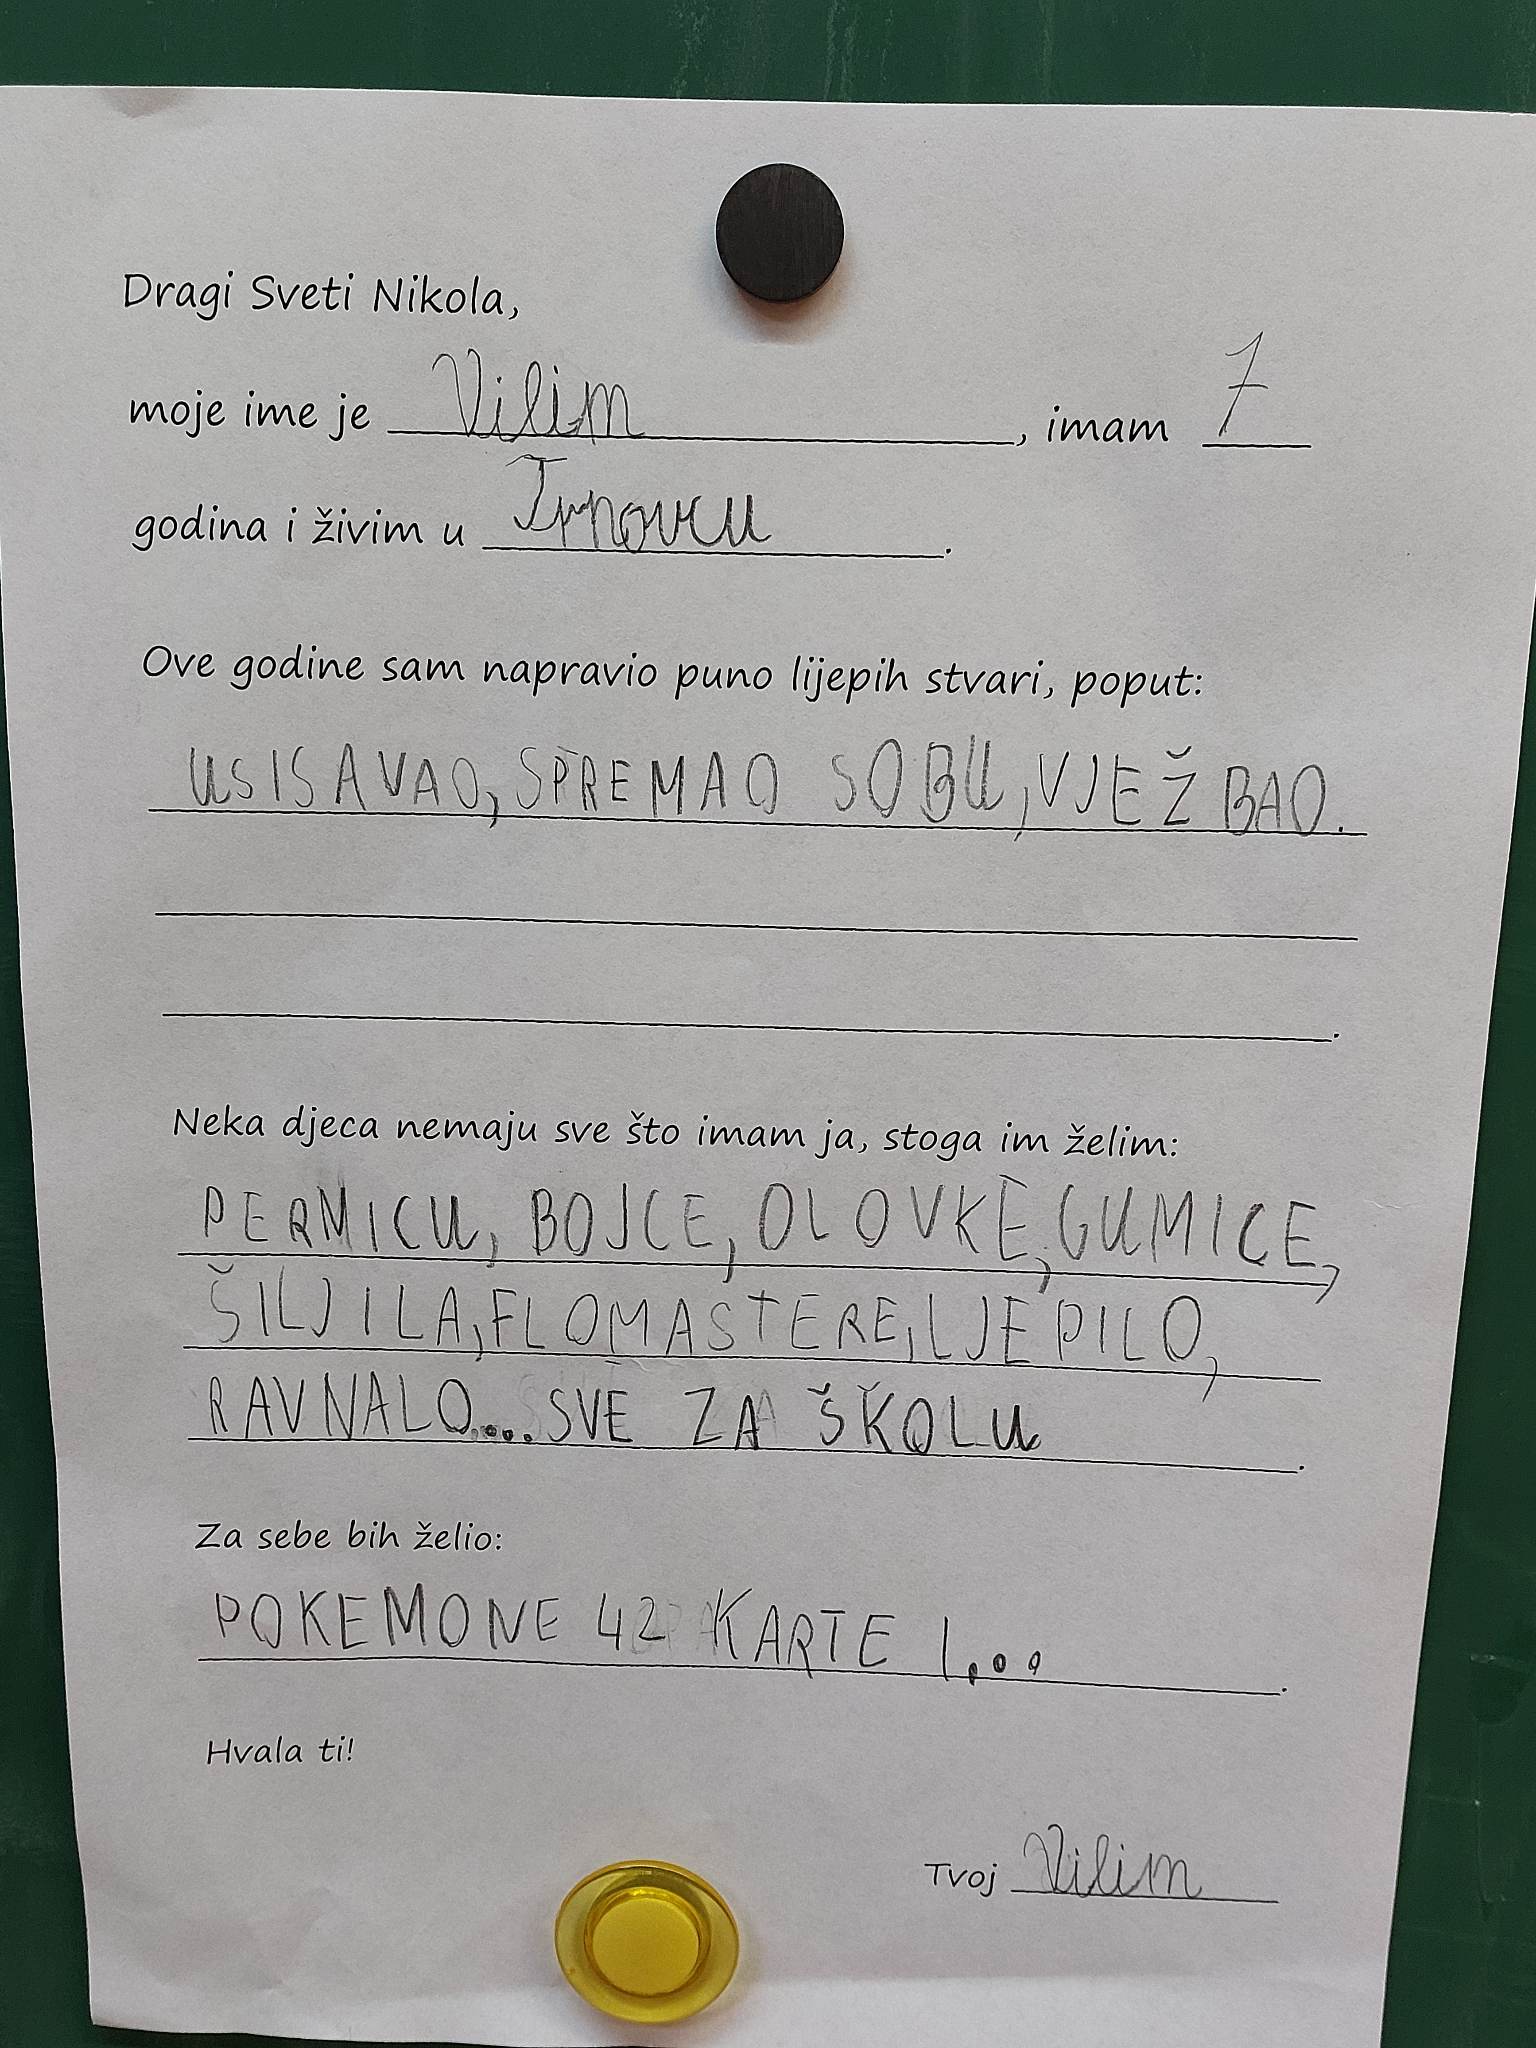 Dragi Sveti Nikola,
moje ime je Vilim, imam 7
godina i živim u Trnovcu.
Ove godine sam napravio puno lijepih stvari, poput:
USISAVAO, SPREMAO SOBU, VJEŽBAO.
Neka djeca nemaju sve što imam ja, stoga im želim:
PERNICU, BOJCE, OLOVKE, GUMICE,
ŠILJILA, FLOMASTERE, LJEPILO,
RAVNALO... SVE ZA ŠKOLU.
Za sebe bih želio:
POKEMONE 42 KARTE I... .
Hvala ti!
Tvoj Vilim